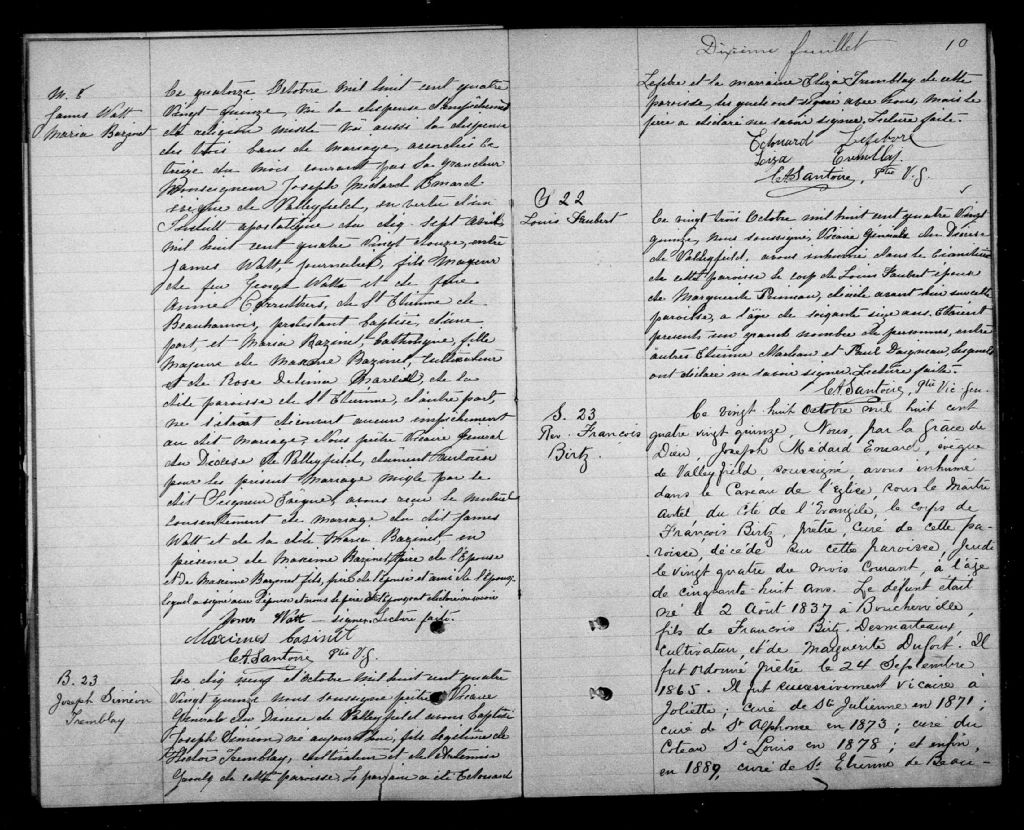 M. 8
James Watt
Maria Bazinet
Ce quatorze Octobre mil huit cent quatre
vingt quinze, Vu la dispense d'empêchement
de religion mixte vu aussi la dispense
des trois bans de mariage, accordés le
treize du mois courant par Sa Grandeur
Monseigneur Joseph Médard Emard
évêque de Valleyfield, en vertu d'un
Indult apostolique du dix-sept avril
mil huit cent quatre vingt douze, entre
James Watt, journalier, fils majeur
de feu George Watt et de feue
Annie Carruthers, de St Etienne de
Beauharnois, protestant baptisé, d'une
part, et Maria Bazinet, Catholique, fille
majeure de Maxime Bazinet, Cultivateur
et de Rose Delima, de la
dite paroisse de St Etienne, d'autre part,
ne s'étant découvert aucun empêchement
au dit mariage, Nous prêtre Vicaire général
du Diocèse de Valleyfield, dûment autorisé
pour le présent Mariage mixte par le
dit Seigneur Evêque, avons reçu le mutuel
Consentement de mariage du dit James
Watt et de la dite Maria Bazinet en
présence de Maxime Bazinet, père de l'Epouse
et de Maxime Bazinet fils, frère de l'épouse et ami de l'époux,
lequel a signé avec l'époux et nous le père et l'épouse ont déclaré ne savoir
James Watt — signer. Lecture faite.
Maximes basinet
C.A. Santoire Ptre V.G.
B. 23
Joseph Siméon
Tremblay
Le dix neuf d'octobre mil huit cent quatre
Vingt quinze nous soussigné prêtre Vicaire
Général du Diocèse de Valleyfield avons Baptisé
Joseph Siméon né aujourd'hui, fils légitime de
Hector Tremblay, cultivateur et de Artemise
de cette paroisse. Le parrain a été Edouard
Dixième feuillet
10
Lefebre et la marraine Eliza Tremblay de cette
paroisse, lesquels ont signé avec nous, mais le
père a déclaré ne savoir signer. Lecture faite.
Edouard Lefebvre
Tremblay
C.A. Santoire, Ptre V.G.
S 22
Louis Faubert
Ce vingt trois Octobre mil huit cent quatre Vingt
quinze, nous soussigné, Vicaire Général du Diocèse
de Valleyfield, avons inhumé dans le Cimetière
de cette paroisse le corps de Louis Faubert époux
de Marguerite Primeau, décédé avant hier sur cette
paroisse, a l'âge de soixante seize ans. Etaient
présents un grand nombre de personnes, entre
autres Etienne Marleau et Paul Daigneau, lesquels
ont déclaré ne savoir signer. Lecture faite.
C.A. Santoire, Ptre Vic. Gén.
S. 23
Rev. François
Birtz
Ce vingt huit octobre mil huit cent
quatre vingt quinze, Nous, par la grâce de
Dieu, Joseph Médard Emard, évêque
de Valleyfield, soussigné, avons inhumé
dans le Caveau de l'Eglise, sous le Maître
Autel du côté de l'Evangile, le corps de
François Birtz, prêtre, curé de cette pa-
roisse, décédé sur cette paroisse, Jeudi
le vingt quatre du mois Courant, à l'âge
de cinquante huit ans. Le défunt était
né le 2 Août 1837 à Boucherville,
fils de François Birtz Desmarteaux,
Cultivateur, et de Marguerite Dufort. Il
fut Ordonné prêtre le 24 Septembre
1865. Il fut successivement vicaire à
Joliette; curé de Ste Julienne en 1871;
curé de St Alphonse en 1873; curé du
Coteau St Louis en 1878; et enfin,
en 1889, curé de St Etienne de Beau-